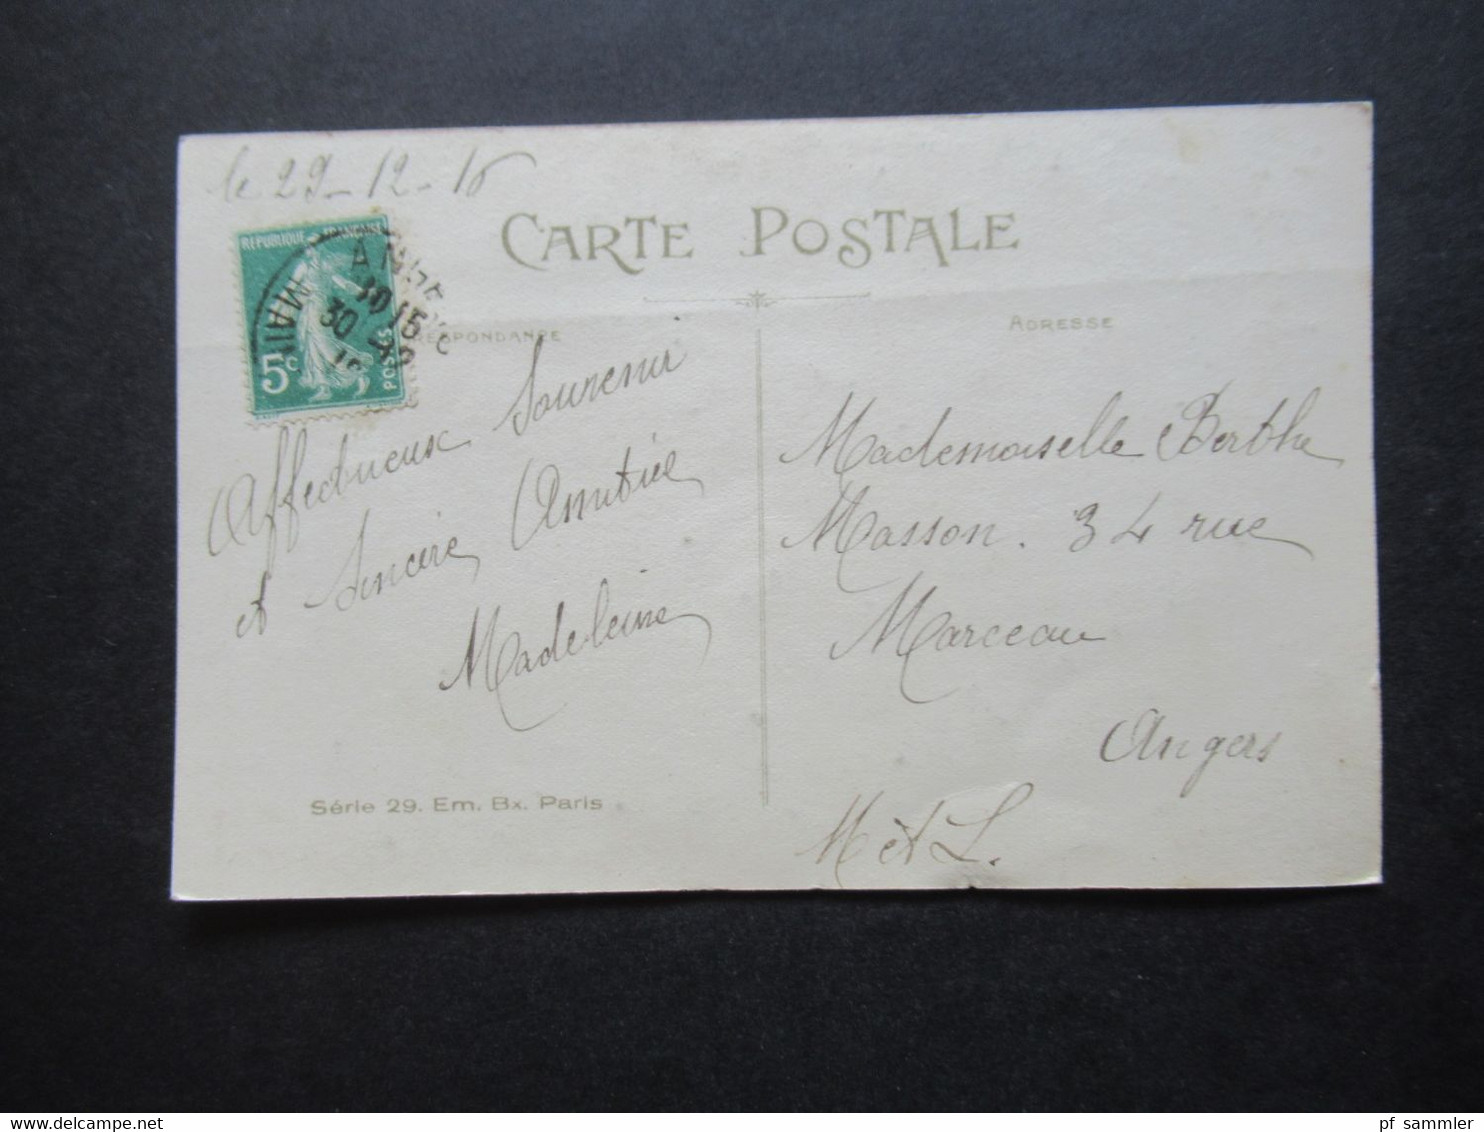 le 29-12-16
CARTE POSTALE
RÉPUBLIQUE FRANÇAISE
5c POSTES
30
ADRESSE
Affectueux Souvenir
et Sincère Amitiée
Madeleine
Mademoiselle Berthe
Masson. 34 rue
Marceau
Angers
M et L.
Série 29. Em. Bx. Paris
www.delcampe.net
pf_sammler